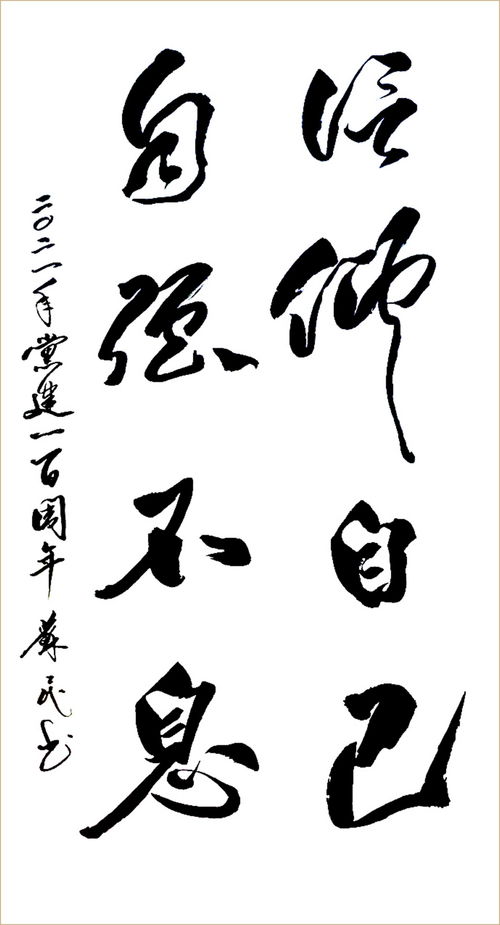 信仰自己
自强不息
二〇二一年黨建一百周年 蘇民书